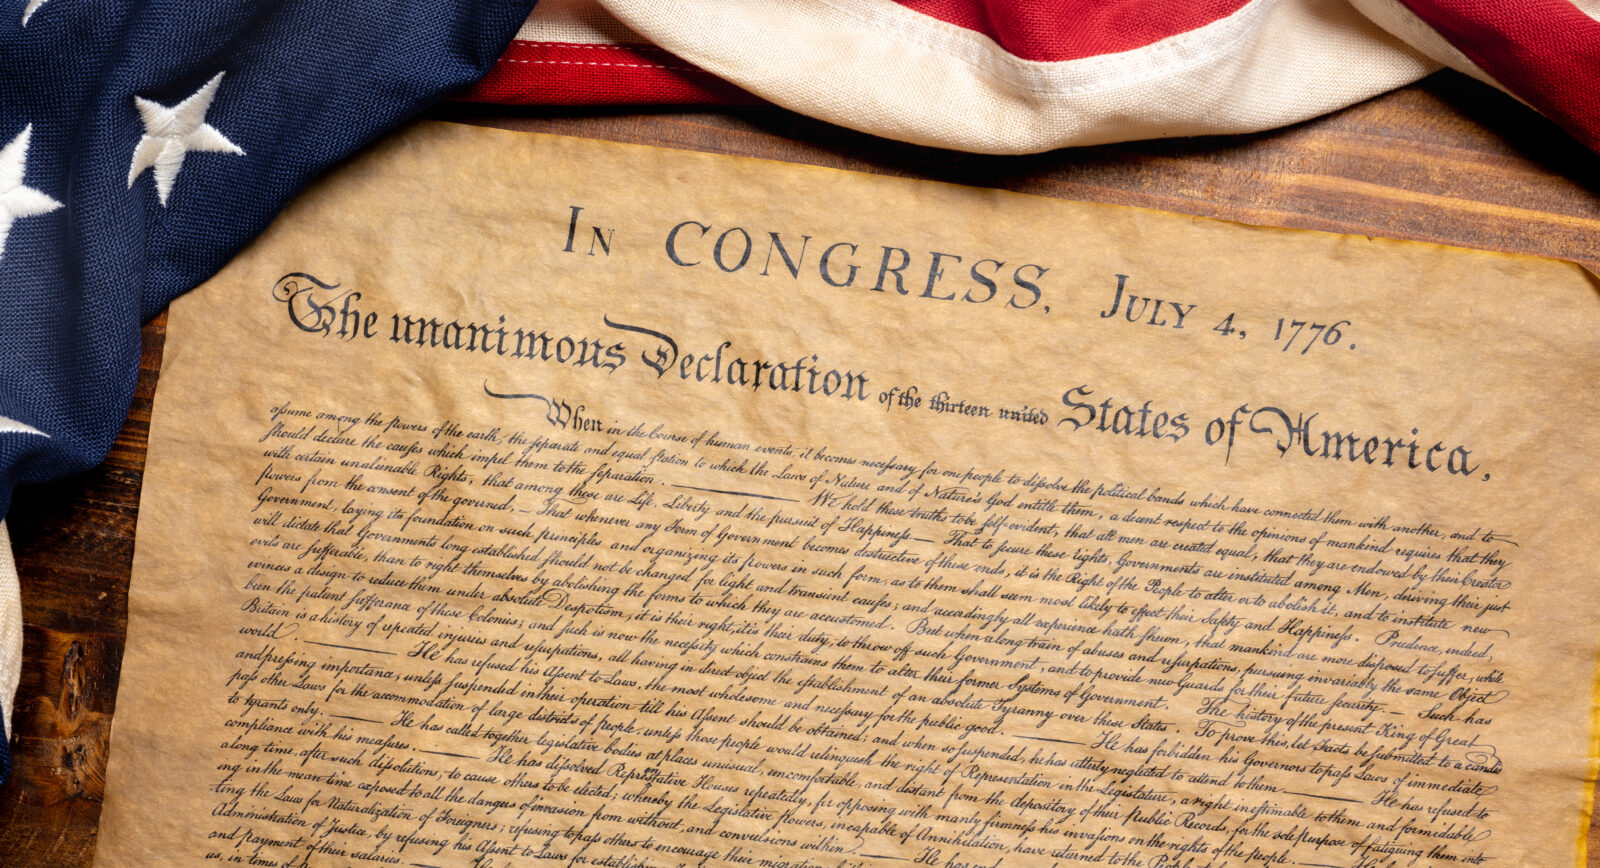 In CONGRESS, July 4, 1776.
The unanimous Declaration of the thirteen united States of America,
When in the Course of human events, it becomes necessary for one people to dissolve the political bands which have connected them with another, and to
assume among the powers of the earth, the separate and equal station to which the Laws of Nature and of Nature's God entitle them, a decent respect to the opinions of mankind requires that they
should declare the causes which impel them to the separation. — We hold these truths to be self-evident, that all men are created equal, that they are endowed by their Creator
with certain unalienable Rights, that among these are Life, Liberty and the pursuit of Happiness.— That to secure these rights, Governments are instituted among Men, deriving their just
powers from the consent of the governed, — That whenever any Form of Government becomes destructive of these ends, it is the Right of the People to alter or to abolish it, and to institute new
Government, laying its foundation on such principles and organizing its powers in such form, as to them shall seem most likely to effect their Safety and Happiness. Prudence, indeed,
will dictate that Governments long established should not be changed for light and transient causes; and accordingly all experience hath shewn, that mankind are more disposed to suffer, while
evils are sufferable, than to right themselves by abolishing the forms to which they are accustomed. But when a long train of abuses and usurpations, pursuing invariably the same Object
evinces a design to reduce them under absolute Despotism, it is their right, it is their duty, to throw off such Government, and to provide new Guards for their future security.— Such has
been the patient sufferance of these Colonies; and such is now the necessity which constrains them to alter their former Systems of Government. The history of the present King of Great
Britain is a history of repeated injuries and usurpations, all having in direct object the establishment of an absolute Tyranny over these States. To prove this, let Facts be submitted to a candid
world. — He has refused his Assent to Laws, the most wholesome and necessary for the public good. — He has forbidden his Governors to pass Laws of immediate
and pressing importance, unless suspended in their operation till his Assent should be obtained; and when so suspended, he has utterly neglected to attend to them. — He has refused to
pass other Laws for the accommodation of large districts of people, unless those people would relinquish the right of Representation in the Legislature, a right inestimable to them and formidable
to tyrants only. — He has called together legislative bodies at places unusual, uncomfortable, and distant from the depository of their public Records, for the sole purpose of fatiguing them into
compliance with his measures. — He has dissolved Representative Houses repeatedly, for opposing with manly firmness his invasions on the rights of the people. —
along time, after such dissolutions, to cause others to be elected; whereby the Legislative powers, incapable of Annihilation, have returned to the People
ing in the mean time exposed to all the dangers of invasion from without, and convulsions within. — He has
ting the Laws for Naturalization of Foreigners; refusing to pass others to encourage their
Administration of Justice, by refusing his Assent to Laws for
and payment of their salaries. —
us, in times of